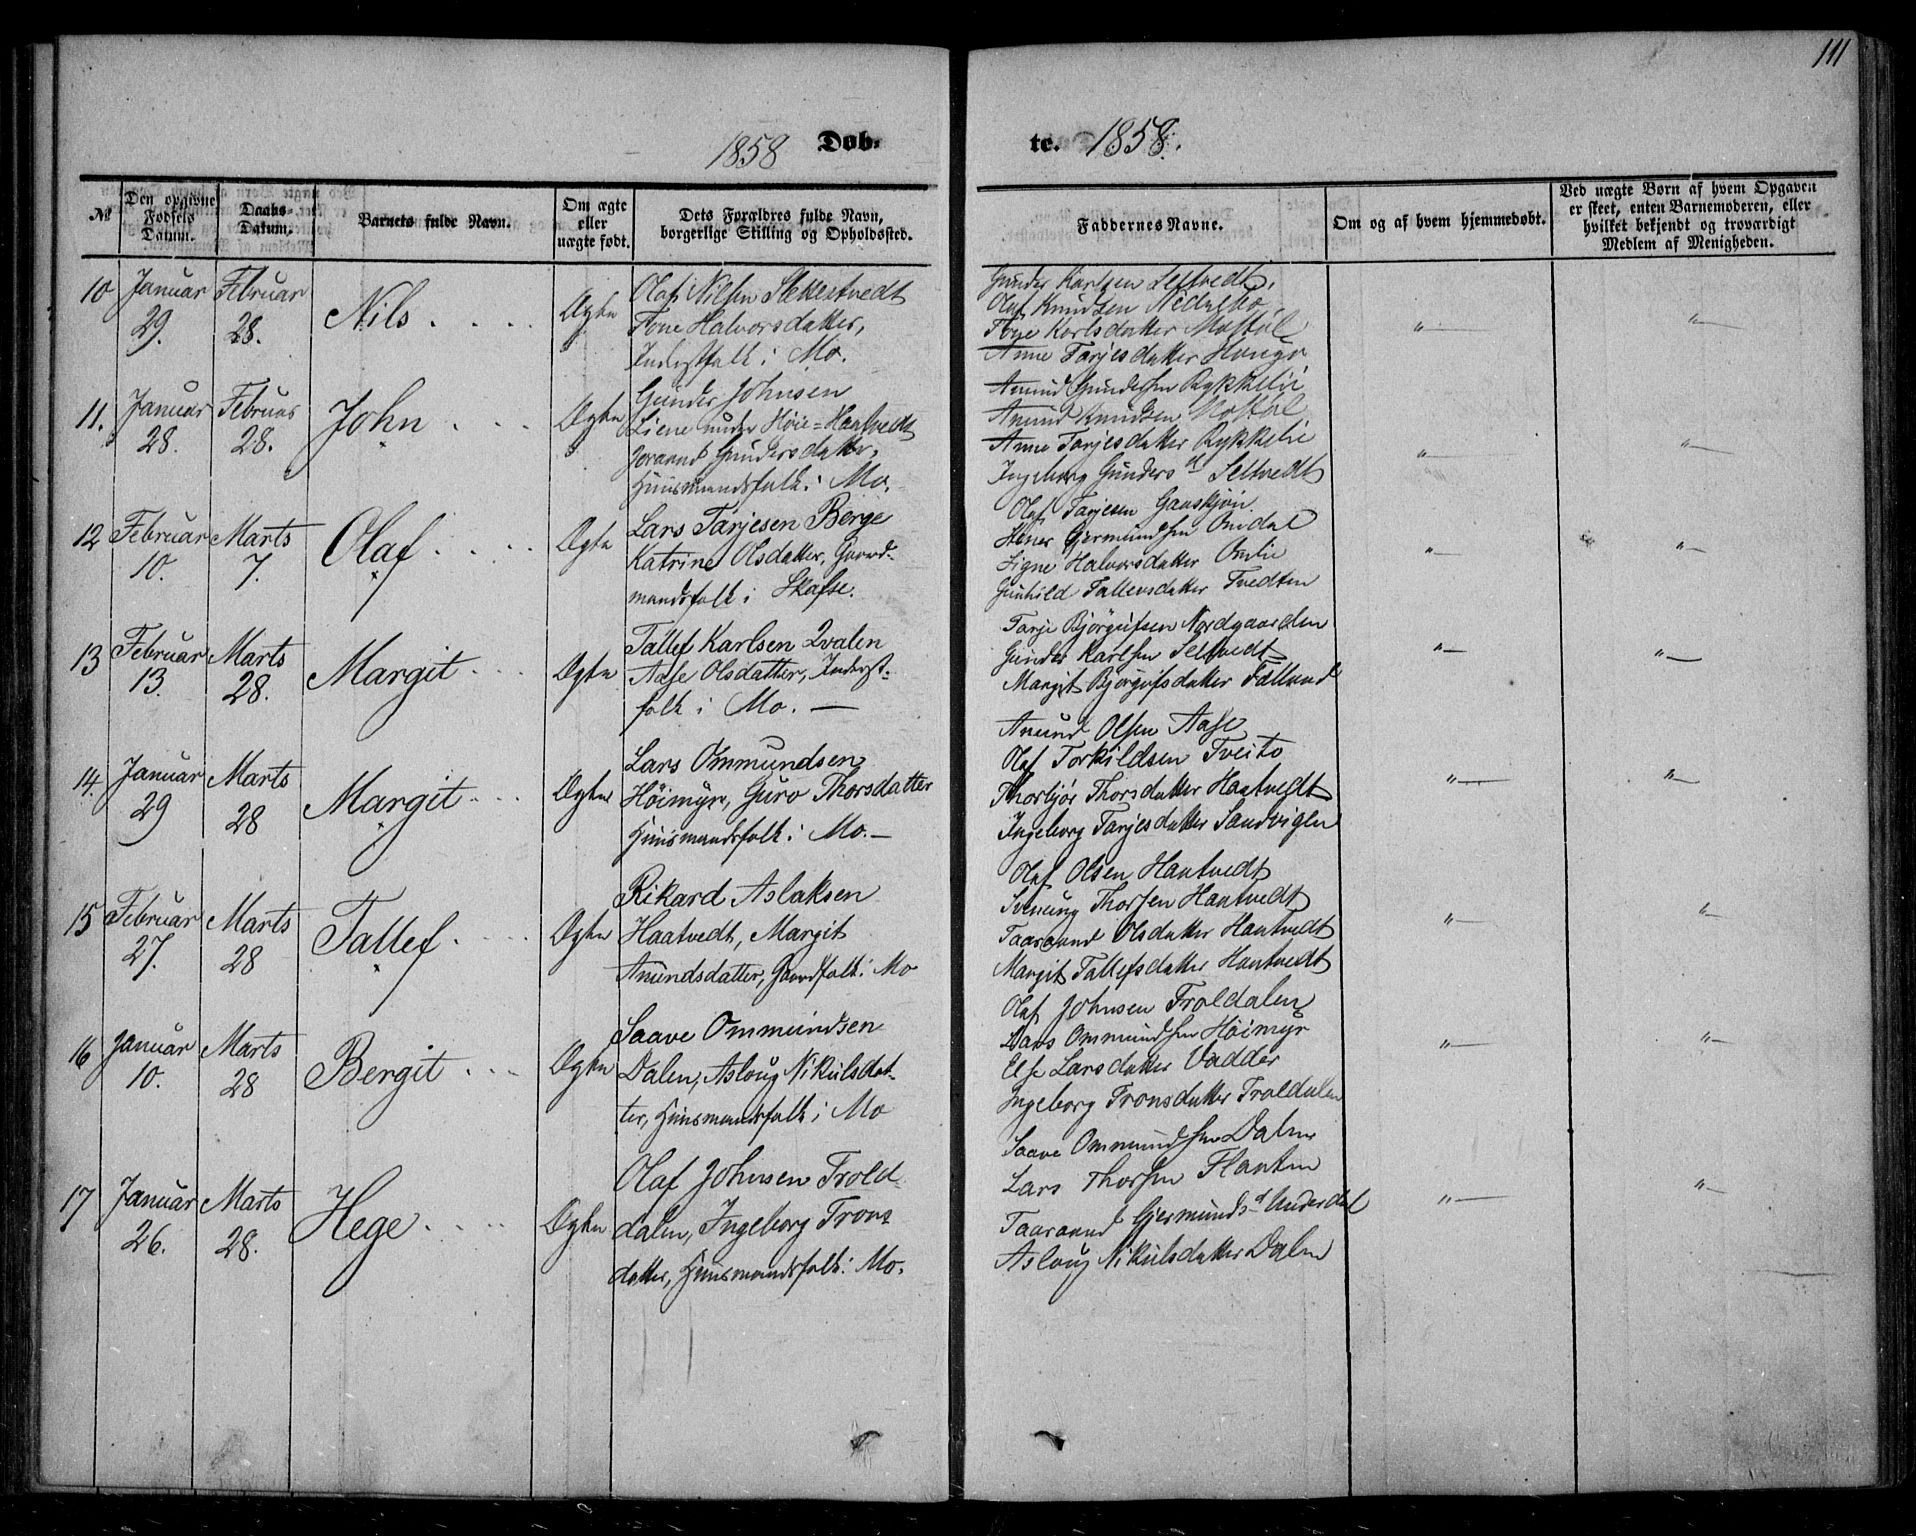 111
1858 Døb-
te. 1858.
№
Den opgivne Fødsels Datum.
Daabs-Datum.
Barnets fulde Navn.
Om ægte eller uægte født.
Dets Forældres fulde Navn, borgerlige Stilling og Opholdssted.
Faddernes Navne.
Om og af hvem hjemmedøbt.
Ved uægte Børn af hvem Opgaven er skeet, enten Barnemoderen, eller hvilket bekjendt og troværdigt Medlem af Menigheden.
10 Januar 29. Februar 28. Nils Ægte
Olaf Nilsen Slekestvedt
Tone Halvorsdatter,
Inderstfolk i Mo.
Gunder Karlsen Seltvedt,
Olaf Knudsen Nedrebø,
Tone Karlsdatter Mostøl
Anne Tarjesdatter Haugo
11. Januar 28. Februar 28. John Ægte
Gunder Johnsen
Liene under Høie=Haatvedt
Joraand Gundersdatter,
Huusmandsfolk i Mo.
Amund Gundersen Rykkelie
Amund Knudsen Mostøl
Anne Tarjesdatter Rykkelie
Ingeborg Gundersd. Seltvedt
12 Februar 10. Marts 7. Olaf Ægte
Lars Tarjesen Berge
Katrine Olsdatter, Gaard-
mandsfolk i Skafse.
Olaf Tarjesen Gaaskjøn.
Gjermundsen Omdal
Signe Halvorsdatter Omlie
Gunhild Tallevsdatter Tvedten
13 Februar 13. Marts 28. Margit Ægte
Tallef Karlsen Qvalen
Aase Olsdatter, Inderst-
folk i Mo. —
Tarje Bjørgufsen Nordgaarden
Gunder Karlsen Seltvedt
Margit Bjørgufsdatter Fælland
14. Januar 29 Marts 28 Margit Ægte
Lars Ommundsen
Høimyr, Guro Thorsdatter
Huusmandsfolk i Mo. —
Amund Olsen Aase
Olaf Torkildsen Tveito
Thorbjør Thorsdatter Haatvedt
Ingeborg Tarjesdatter Sandvigen
15 Februar 27. Marts 28 Tallef Ægte
Rikard Aslaksen
Haatvedt, Margit
Amundsdatter, Gaardfolk i Mo
Olaf Olsen Haatvedt
Svenung Thorsen Haatvedt
Taaraand Olsdatter Haatvedt
Margit Tallefsdatter Haatvedt
16 Januar 10. Marts 28 Bergit Ægte
Saave Ommundsen
Dalen, Asloug Nikulsdat-
ter, Huusmandsfolk i Mo
Olaf Johnsen Troldalen
Lars Ommundsen Høimyr
Else Larsdatter Vadder
Ingeborg Tronsdatter Troldalen
17 Januar 26. Marts 28. Hege Ægte
Olaf Johnsen Trold
dalen, Ingeborg Trons
datter, Huusmandsfolk i Mo.
Saave Ommundsen Dalen
Lars Thorsen Flaaten
Taaraand Gjermundsd. Underdal
Asloug Nikulsdatter Dalen